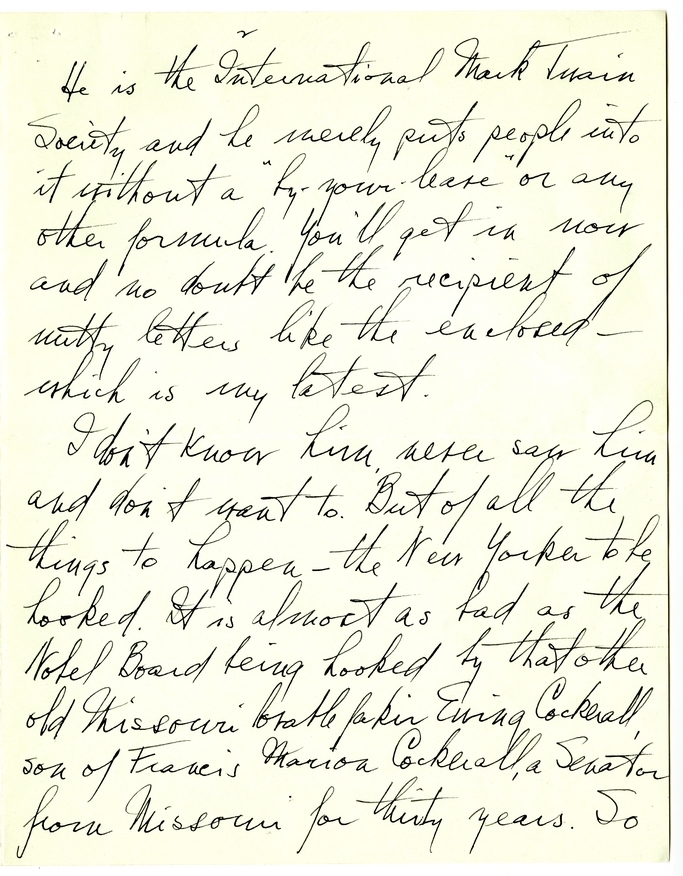 He is the International Mark Twain
Society and he merely puts people into
it without a "by-your-leave" or any
other formula. You'll get in now
and no doubt be the recipient of
nutty letters like the enclosed—
which is my latest.
I don't know him, never saw him
and don't want to. But of all the
things to happen—the New Yorker to be
hooked. It is almost as bad as the
Nobel Board being hooked by that other
old Missouri lovable fakir Ewing Cockerall,
son of Francis Marion Cockerall, a Senator
from Missouri for thirty years. So